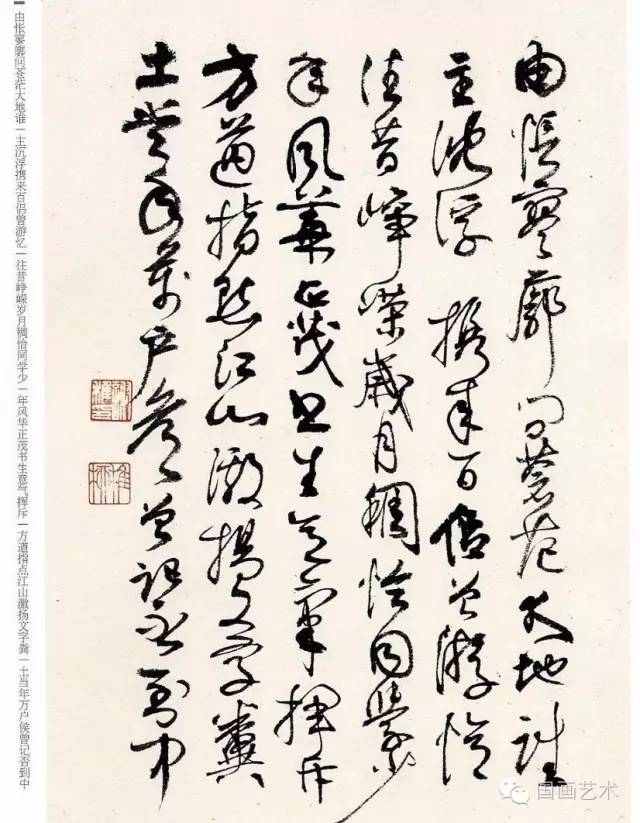 由悵寥廓问蒼茫大地誰
主沈浮携来百侣曾游憶
往昔崢嶸歲月稠恰同學少
年风華正茂书生意氣揮斥
方遒指點江山激揚文字糞
土當年萬户侯曾記否到中
由怅寥廓问苍茫大地谁|主沉浮携来百侣曾游忆|往昔峥嵘岁月稠恰同学少|年风华正茂书生意气挥斥|方道指点江山激扬文字粪|土当年万户侯曾记否到中
国画艺术